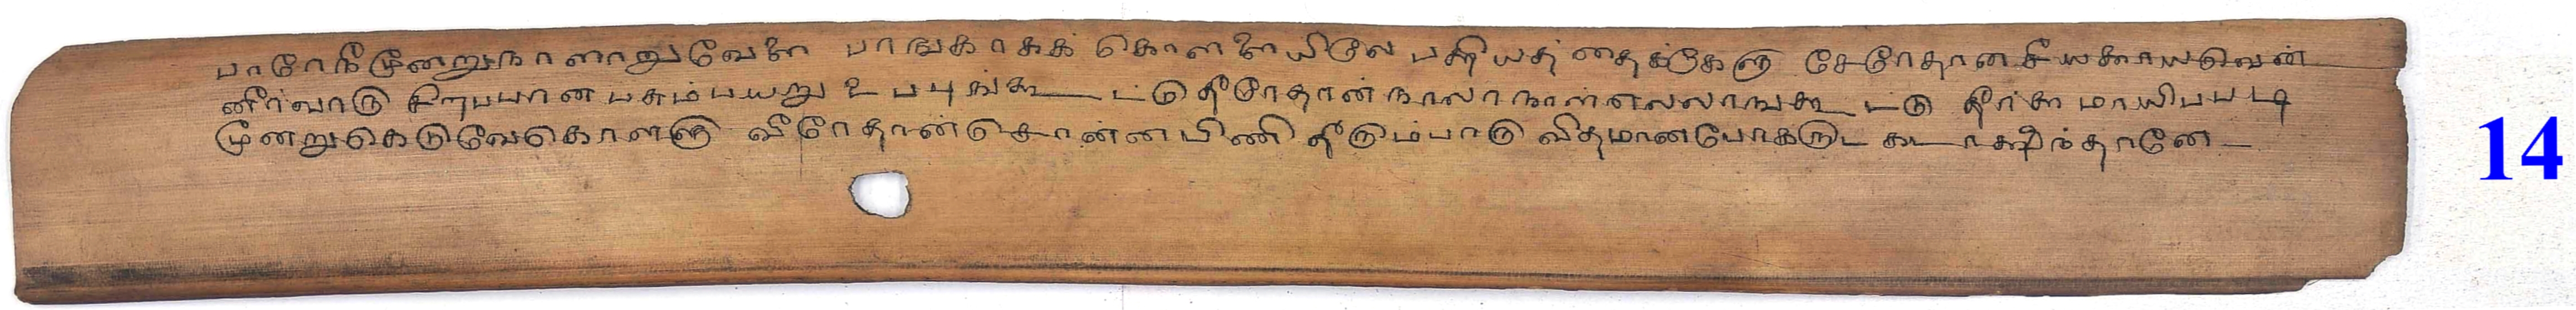 பாரேநீமூனறுநாளாறுவேளை பாஙகாகக் கொளளையிலே பதியத்தைக்கேளு சேரேதானசீயககாயவெண்
ணீர்வாரு சிறபபான பசும்பயறு உபபுங்கூட்டு தீரேதான்நாலாநாள்எலலாஙகூட்டு தீர்க்கமாயிபபடி
மூனறுகெடுவேகொளளு வீரேதான்சொன்னபிணி தீரும்பாரு விதமானபோகருட கடாக்ஷந்தானே
14